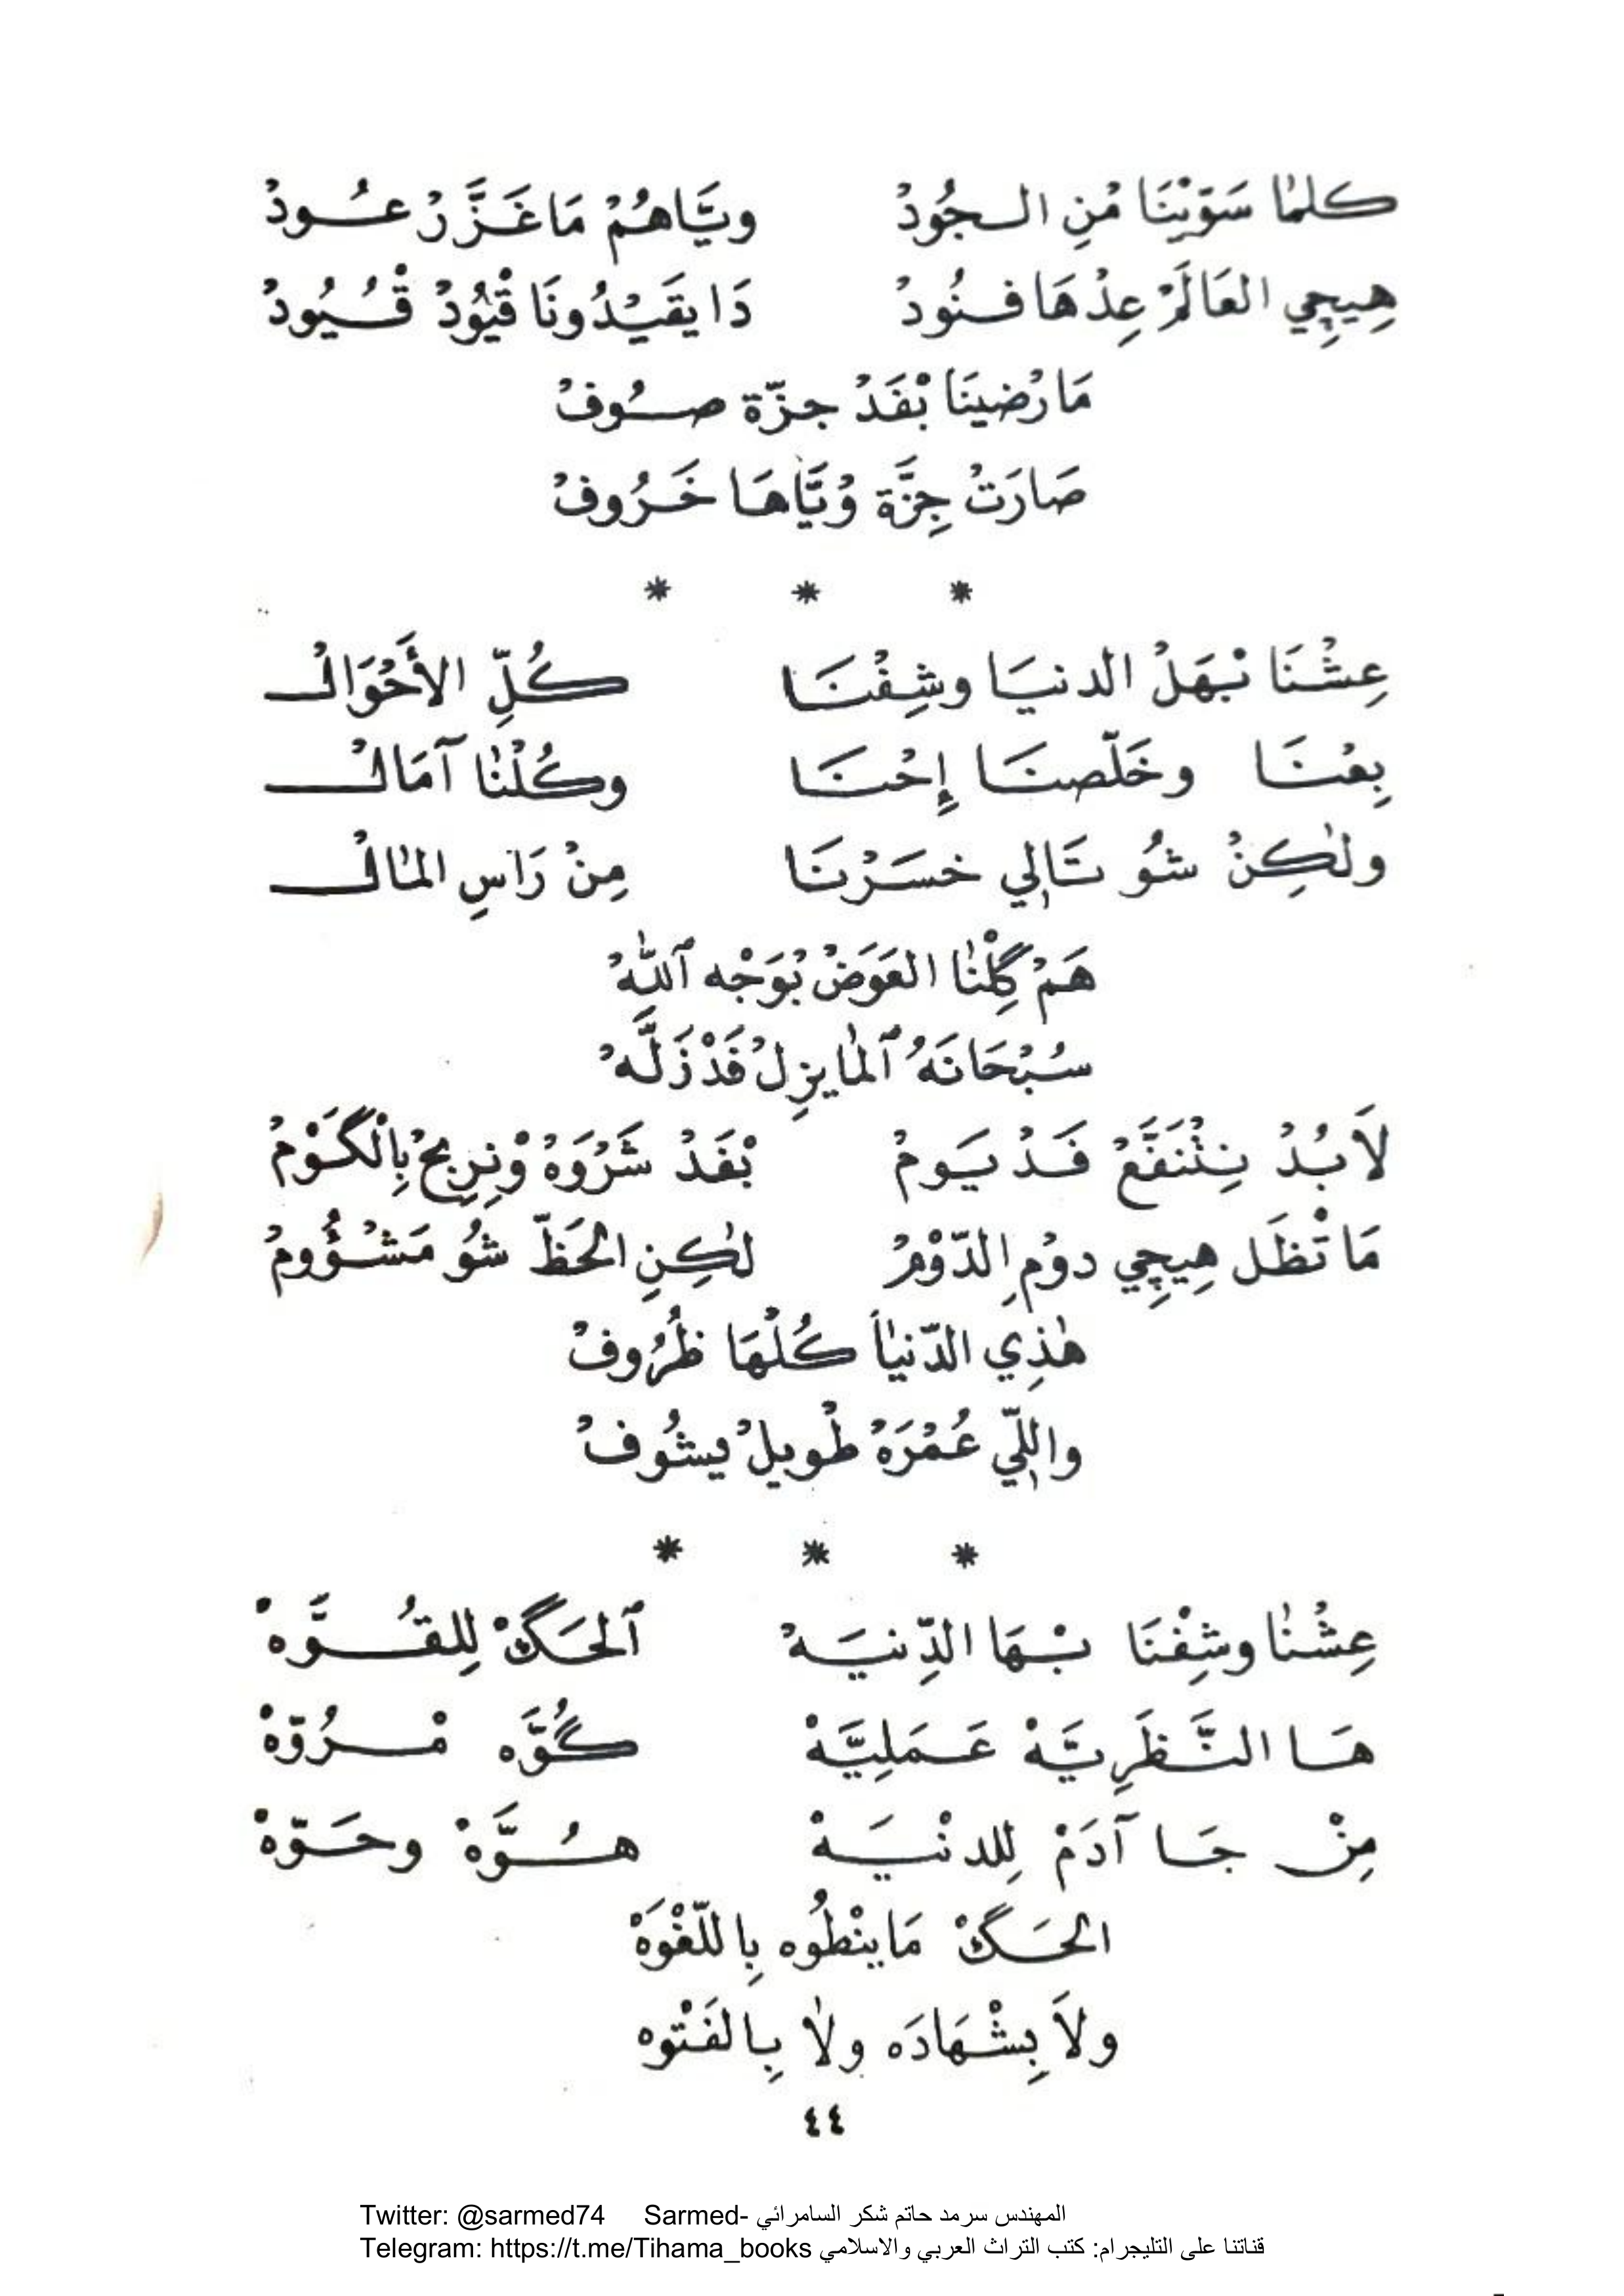 كلمٰا سَوّيْنَا مْنِ الجُودْ    ويَّاهُمْ مَا غَزَّرْ عُودْ
هِيچِي العَالَمْ عِدْهَا فنُودْ    دَا يقَيْدُونَا قْيُودْ قْيُودْ
مَا رْضينَا بْفَدْ جزّة صُوفْ
صَارَتْ جِزَّة وْيَّاهَا خَرُوفْ
* * *
عِشْنَا بْهَلْ الدنيَا وشِفْنَا    كُلِّ الأَحْوَالْ
بِعْنَا وخَلّصنَا إحْنَا    وكُلْنٰا آمَالْ
ولٰكِنْ شُو تَالِي خسَرْنَا    مِنْ رَاسِ المٰالْ
هَمْ گِلْنٰا العَوَضْ بْوَجْه ٱللّٰهْ
سُبْحَانَهُ ٱلمٰا يزِلْ فَدْ زَلَّهْ
لاَبُدْ نِتْنَفَّعْ فَدْ يَومْ    بْفَدْ شَرْوَهْ وْنِرِبحْ بِالْگَوْمْ
مَا تْظَل هِيچِي دوْمِ الدّوْمْ    لٰكِنِ الحَظّ شُو مَشْؤُومْ
هٰذِي الدّنيٰا كُلْهَا ظُرُوفْ
واللِّي عُمْرَهْ طْويلْ يشُوفْ
* * *
عِشْنٰا وشِفْنَا بْهَا الدِّنيَهْ    ٱلحَگْ لِلقُوَّهْ
هَا النَّظَرِيَّهْ عَمَلِيَّهْ    گُوَّه مْرُوّهْ
مِنْ جَا آدَمْ لِلدنْيَهْ    هُوَّهْ وحَوّهْ
الحَگْ مَا ينْطُوه بِاللّغْوَهْ
ولاَ بِشْهَادَه ولٰا بِالفَتْوه
٤٤
Twitter: @sarmed74 Sarmed- المهندس سرمد حاتم شكر السامرائي
Telegram: https://t.me/Tihama_books قناتنا على التليجرام: كتب التراث العربي والاسلامي